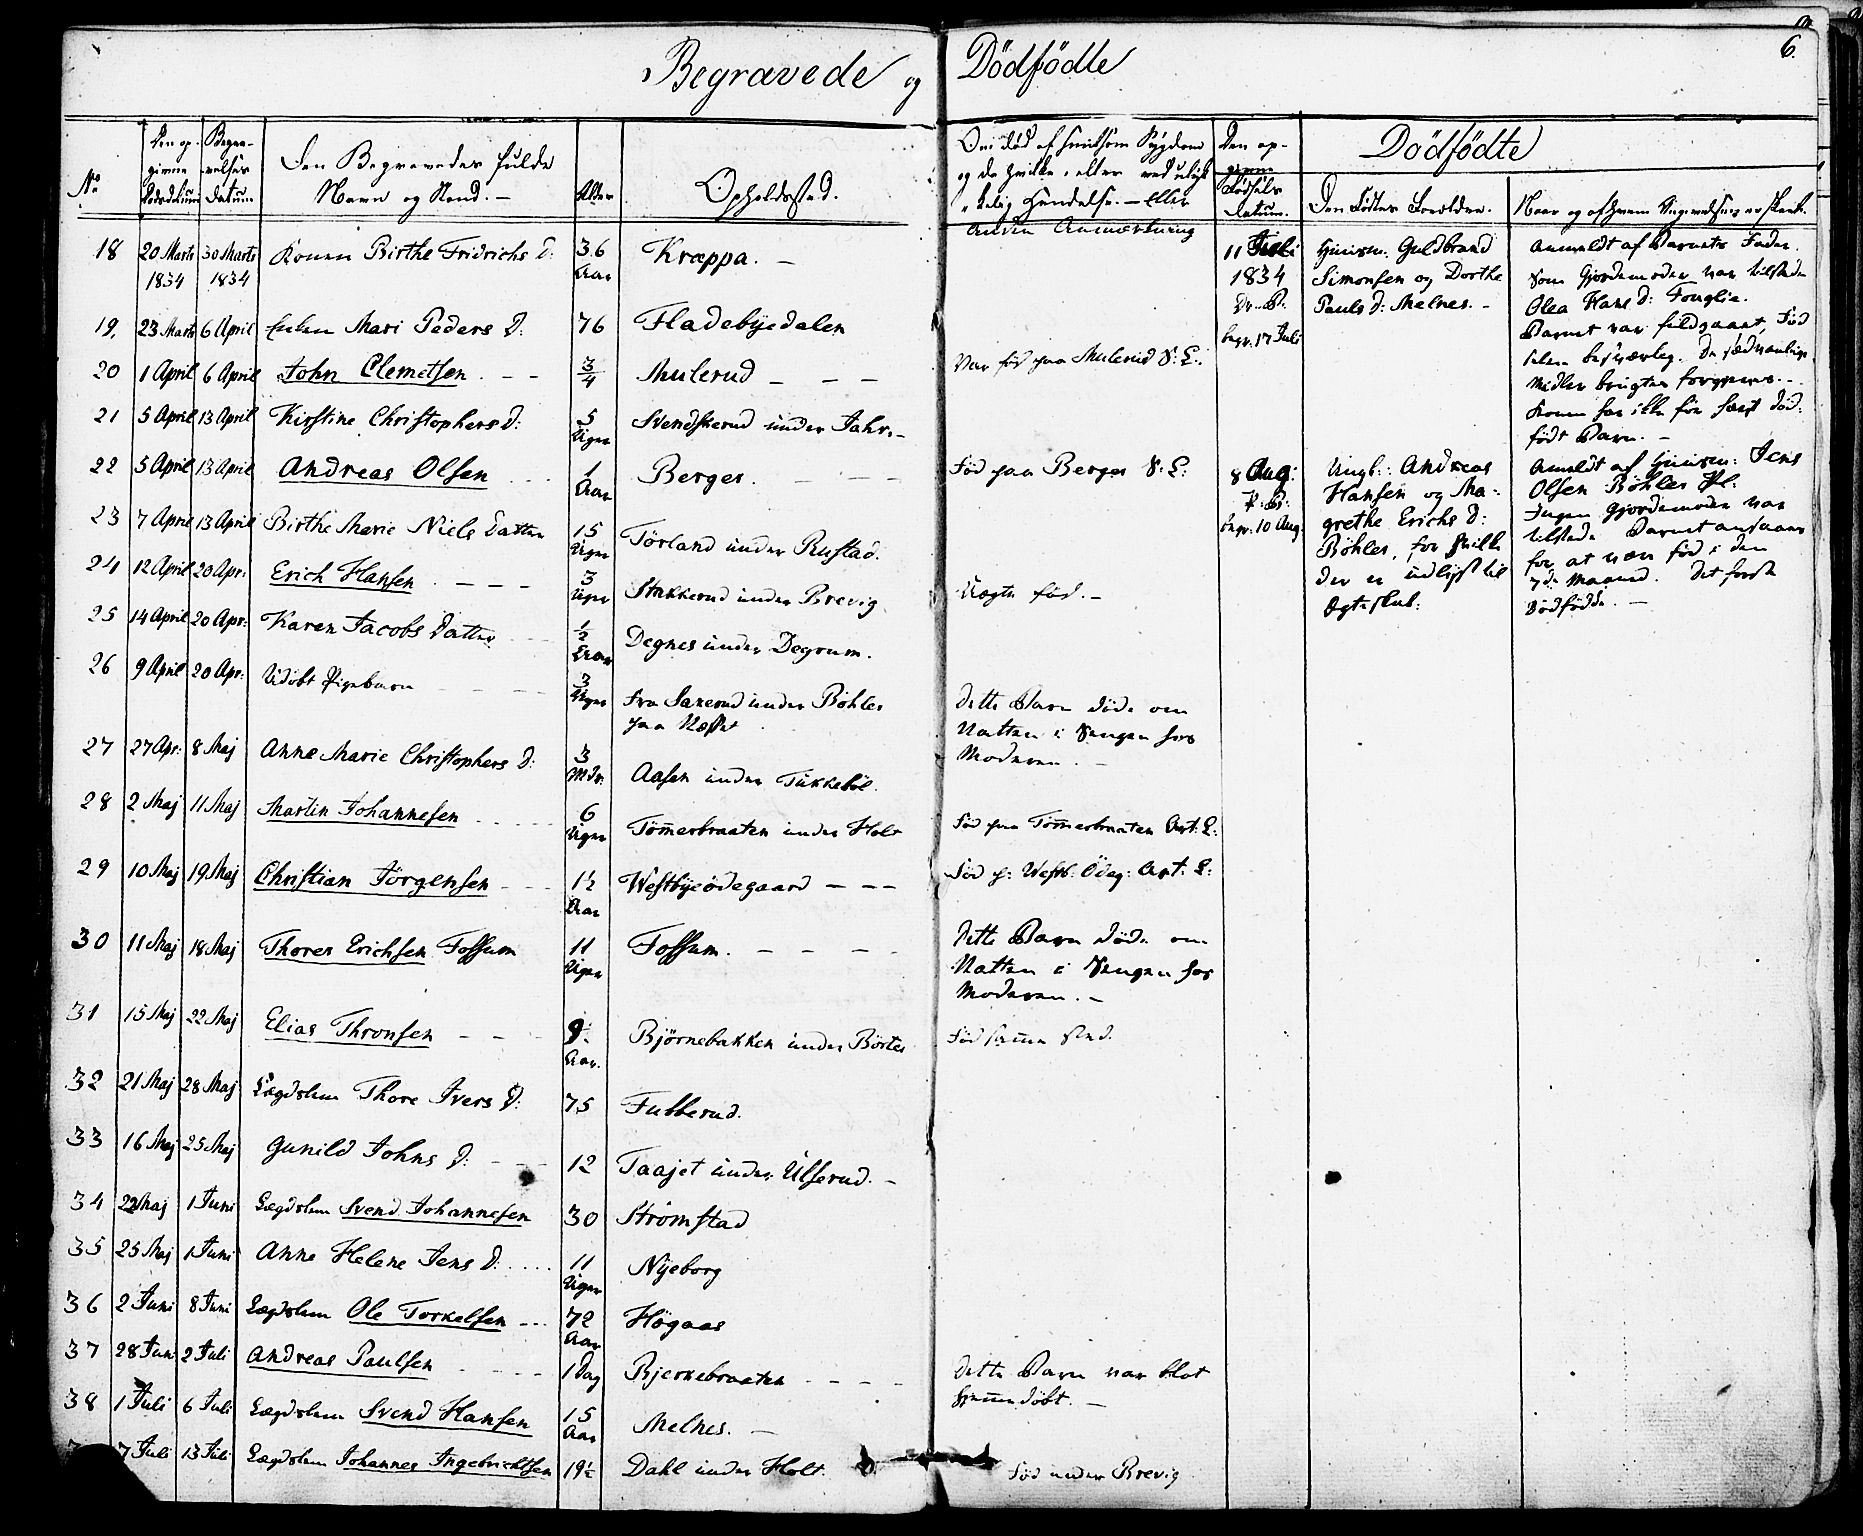 Begravede og Dödfödte
6.
No
Den op-
givne
Dødsdatum
Begra-
velses
Datum
Den Begravedes fulde
Navn og Stand. -
Alder
Opholdssted.
Om død af smitsom Sygdom
og da hvilken, eller ved ulyk-
kelig Hændelse. - Eller
anden Anmærkning
Den op-
givne
Fødsels
Datum.
Dödfödte
Den Fødtes Forældre.
Naar og af hvem Angivelsen er skeet.
18 20 Marts 1834 30 Marts 1834 Konen Birthe Fridrichs D: 36 Aar Kræppa. -
19. 23 Marts 6 April Enken Mari Peders D: 76 Fladebyedalen
20 1 April 6 April John Clemetsen. - - 3/4 Mulerud - - - Var fød paa Mulerud S: L:
21 5 April 13 April Kirstine Christophers D: 5 Uger Svendskerud under Jahr. -
22 5 April 13 April Andreas Olsen 1 Aar Berger. - - - Fød paa Berger S: L:
23 7 April 13 April Birthe Marie Niels Datter 15 Uger Törland under Rustad.
24 12 April 20 Apr: Erich Hansen. - - - 3 Uger Stakkerud under Brevig Uægte fød. -
25 14 April 20 Apr: Karen Jacobs Datter 1/2 Aar Degnes under Degrum.
26 9 April 20 Apr: Udöbt Pigebarn 3 Uger Fra Saxerud under Böhler
paa Næsset
Dette Barn döde om
Natten i Sengen hos
Moderen. -
27 27 Apr: 8 Maj Anne Marie Christophers D: 3 Mdr. Aasen under Tükkeböl.
28 2 Maj 11 Maj Martin Johannesen 6 Uger Tömerbraaten under Holt Fød paa Tömerbraaten Art: L:
29 10 Maj 19 Maj Christian Jörgensen - - - 1½ Aar Westbyeödegaard - - - Fød p: Westb: Ödeg: Art: L:
30 11 Maj 18 Maj Thorer Erichsen Fossum 11 Uger Fossum. - - -
Dette Barn döde om
Natten i Sengen hos
Moderen. -
31 15 Maj 22 Maj Elias Thronsen - - Aar. Björnebakken under Börter Fød samme Sted.
32 21 Maj 28 Maj Lægdslem Thore Ivers D: 75 Fubberud.
33 16 Maj 25 Maj Gunild Johns D: - - - 12 Taajet under Ulserud. -
34 22 Maj 1 Juni Lægdslem Svend Johannesen 30 Strömstad
35 25 Maj 1 Juni Anne Helene Jens D: .... 11 Uger Nyeborg
36 2 Juni 8 Juni Lægdslem Ole Torkelsen - - - 72 Aar Högaas
37 28 Juni 2 Juli Andreas Paulsen - - - - 1 Dag Bjerkebraaten - - - -
Dette Barn var blot
hjemmedöbt. -
38 1 Juli 6 Juli Lægdslem Svend Hansen 15 Aar Melnes. -
7 Juli 13 Juli Lægdslem Johannes Ingebrichtsen 19½ Dahl under Holt. Fød under Brevig
11 Juli
1834
Dr. B.
begr. 17 Juli
Huusm: Guldbrand
Simonsen og Dorthe
Pauls D: Melnes. -
Anmeldt af Barnets Fader.
Som Gjordemoder var tilstede
Olea Hans D: Fouglie.
Barnet var fuldbaaret, Fød
selen besværlig. De sædvanlige
Midler brugtes forgjeves. -
Konen har ikke för havt död-
födt Barn. -
8 Aug:
P: B:
begr. 10 Aug.
Ungk: Andreas
Hansen og Ma-
grethe Erichs D:
Böhler, for hvilke
der er udlyst til
Ægteskab:
Anmeldt af Huusm: Jens
Olsen Böhler Pl:
Ingen Gjordemoder var
tilstede. Barnet ansaaes
for at være fød i den
7de Maaned. Det förste
Dödfödde. -